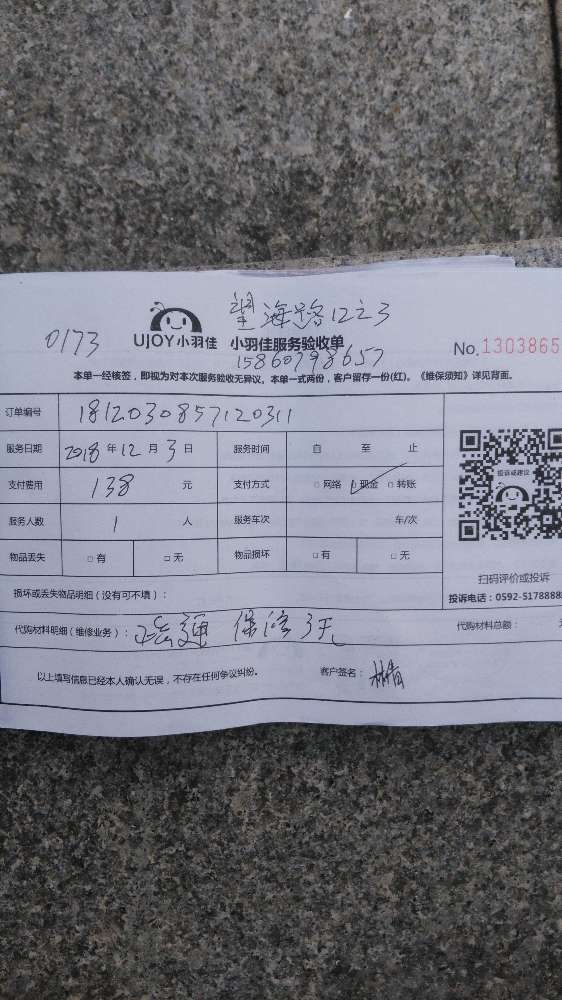 望海路12之3
0173
UJOY小羽佳 小羽佳服务验收单
No.1303865
15860798657
本单一经核签，即视为对本次服务验收无异议。本单一式两份，客户留存一份(红)。《维保须知》详见背面。
订单编号 1812030857120311
服务日期 2018年12月3日 服务时间 自 至 止
支付费用 138 元 支付方式 □网络 ☑现金 □转账
服务人数 1 人 服务车次 车/次
物品丢失 □有 □无 物品损坏 □有 □无
投诉或建议
扫码评价或投诉
损坏或丢失物品明细（没有可不填）：
投诉电话：0592-5178888
代购材料明细（维修业务）： 疏通 保修3天 代购材料总额：
以上填写信息已经本人确认无误，不存在任何争议纠纷。 客户签名：